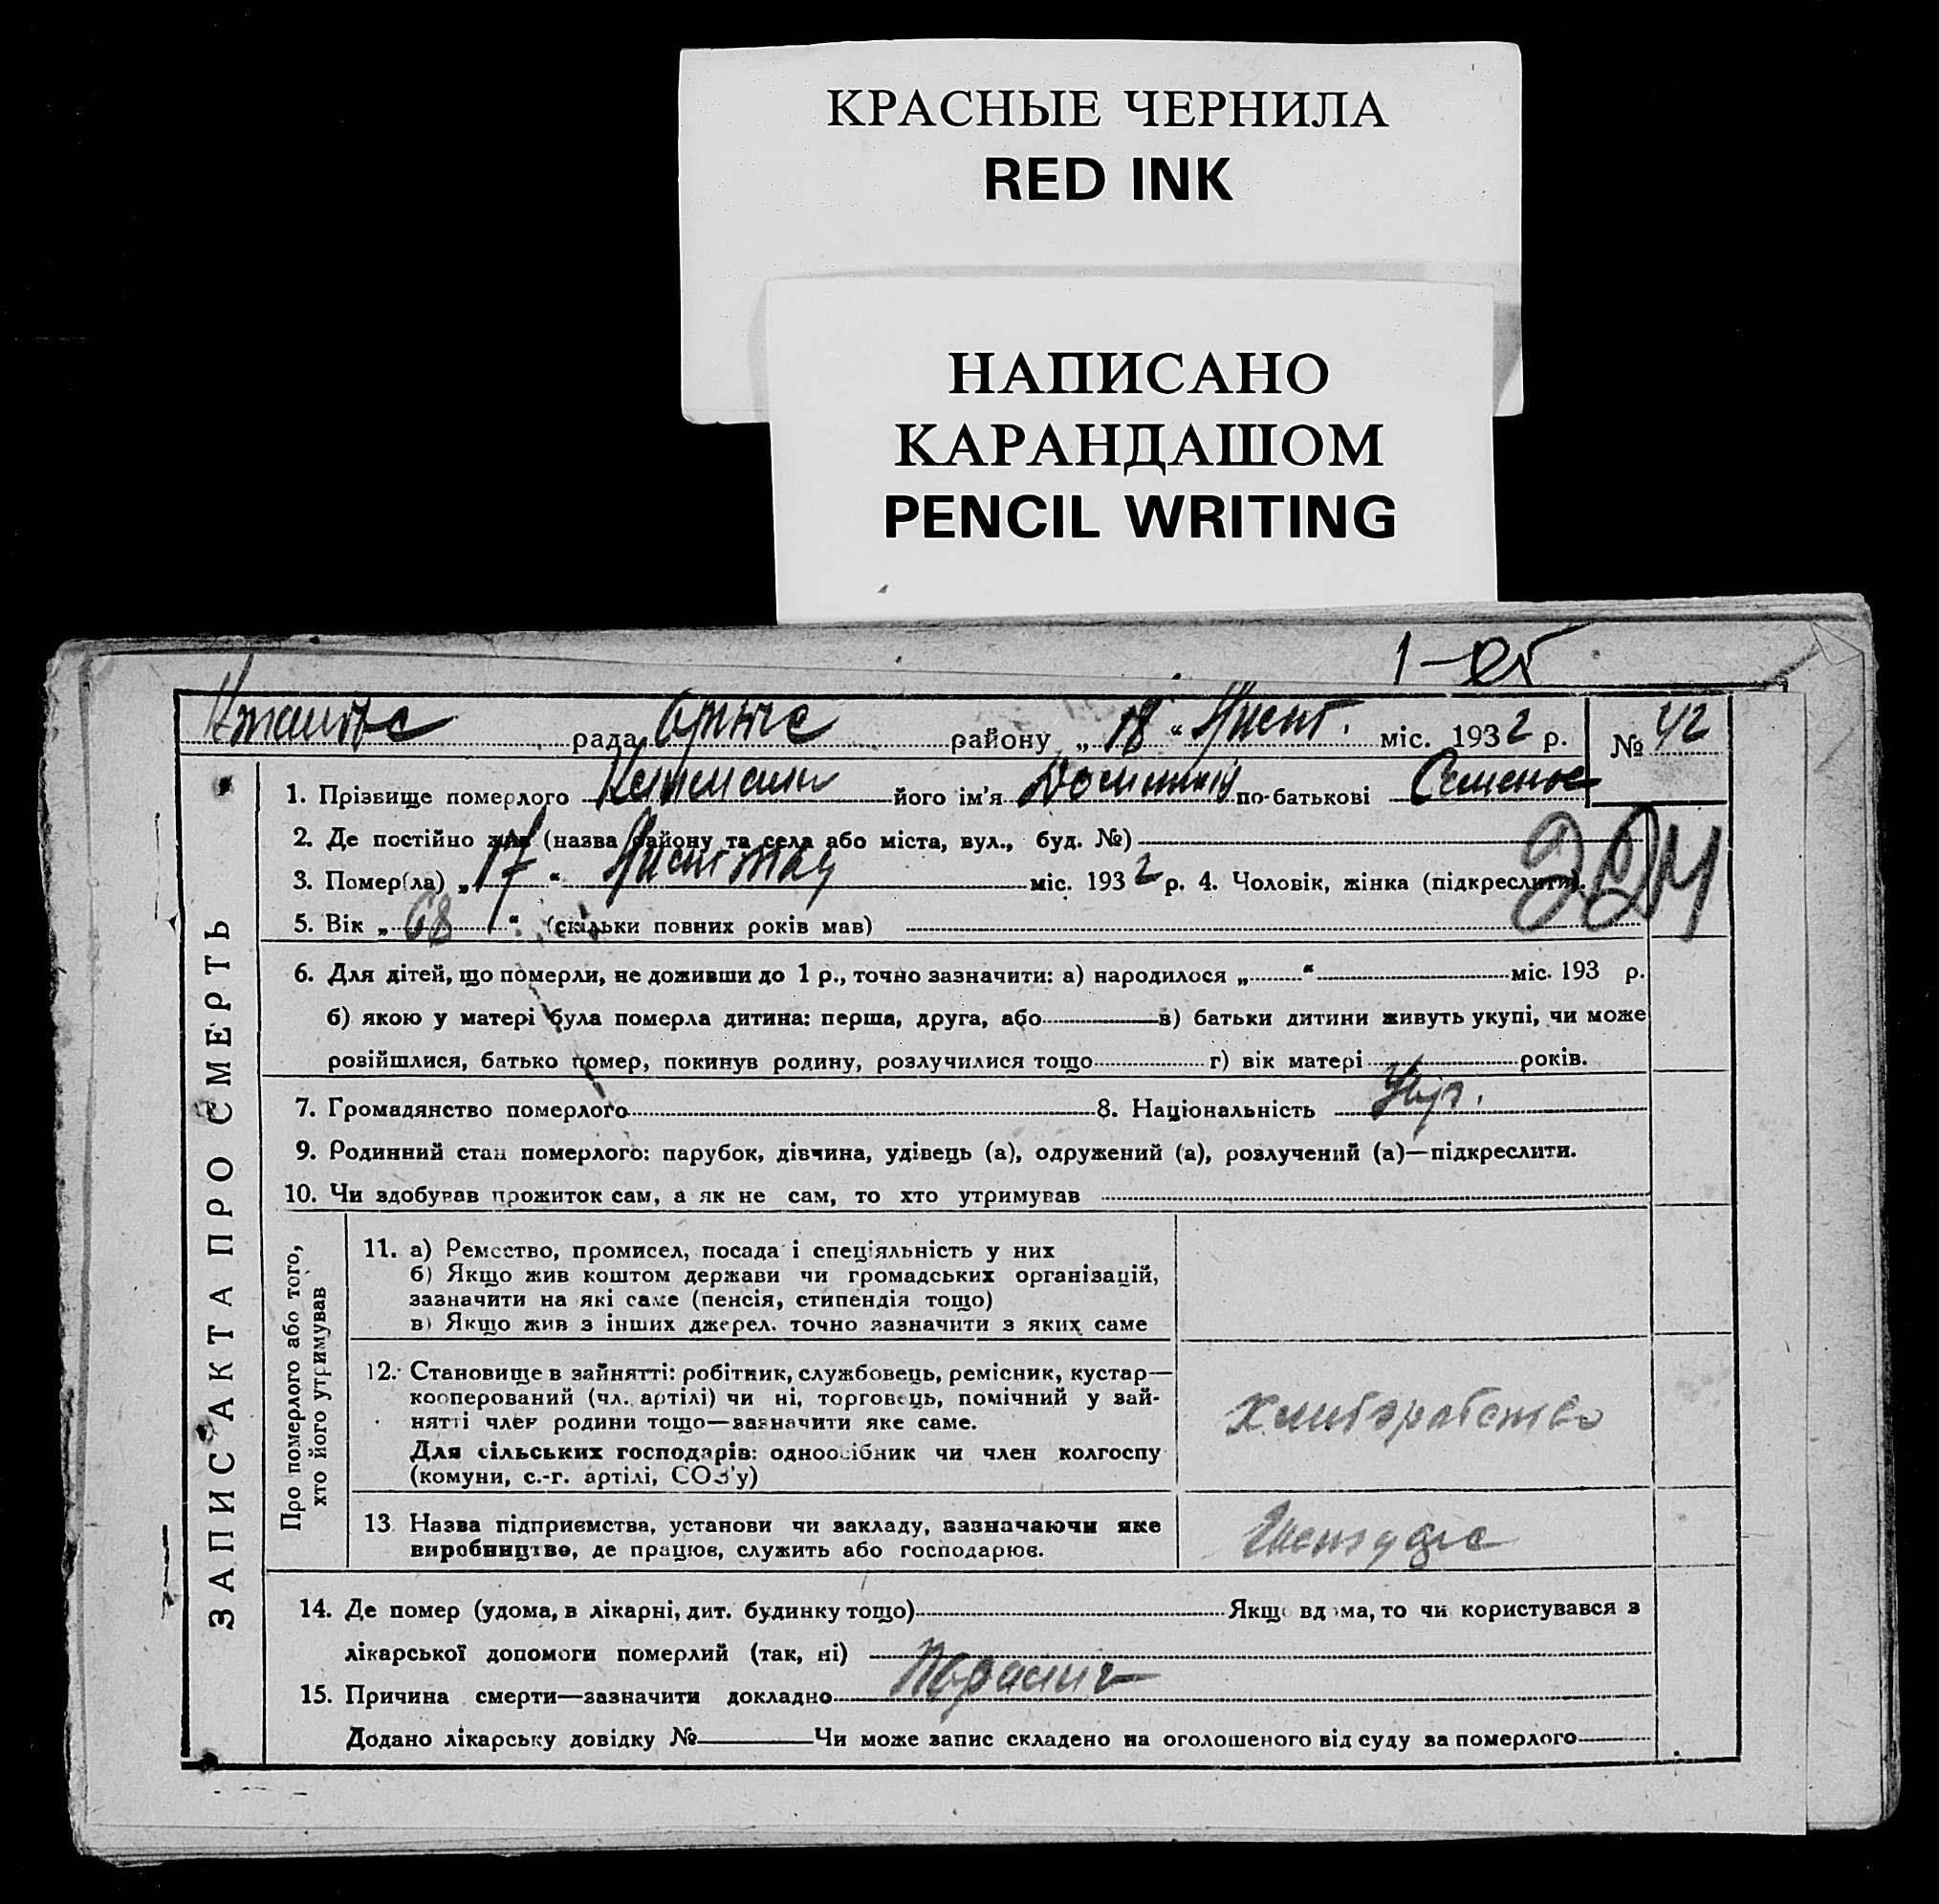 КРАСНЫЕ ЧЕРНИЛА
RED INK
НАПИСАНО
КАРАНДАШОМ
PENCIL WRITING
рада району „18“ міс. 1932 р. № 42
ЗАПИС АКТА ПРО СМЕРТЬ
1. Прізвище померлого його ім'я по-батькові
2. Де постійно жив (назва району та села або міста, вул., буд. №)
3. Помер(ла) „17“ міс. 1932 р. 4. Чоловік, жінка (підкреслити).
5. Вік „68“ (скільки повних років мав)
6. Для дітей, що померли, не доживши до 1 р., точно зазначити: а) народилося „ “ міс. 193 р.
б) якою у матері була померла дитина: перша, друга, або в) батьки дитини живуть укупі, чи може
розійшлися, батько помер, покинув родину, розлучилися тощо г) вік матері років.
7. Громадянство померлого 8. Національність Укр.
9. Родинний стан померлого: парубок, дівчина, удівець (а), одружений (а), розлучений (а)—підкреслити.
10. Чи здобував прожиток сам, а як не сам, то хто утримував
Про померлого або того,
хто його утримував
11. а) Ремество, промисел, посада і спеціяльність у них
б) Якщо жив коштом держави чи громадських організацій,
зазначити на які саме (пенсія, стипендія тощо)
в) Якщо жив з інших джерел. точно зазначити з яких саме
12. Становище в зайнятті: робітник, службовець, ремісник, кустар—
кооперований (чл. артілі) чи ні, торговець, помічний у зай-
нятті член родини тощо—зазначити яке саме.
Для сільських господарів: одноосібник чи член колгоспу
(комуни, с.-г. артілі, СОЗ'у)
13. Назва підприємства, установи чи закладу, зазначаючи яке
виробництво, де працює, служить або господарює.
14. Де помер (удома, в лікарні, дит. будинку тощо) Якщо вдома, то чи користувався з
лікарської допомоги померлий (так, ні)
15. Причина смерти—зазначити докладно
Додано лікарську довідку № Чи може запис складено на оголошеного від суду за померлого